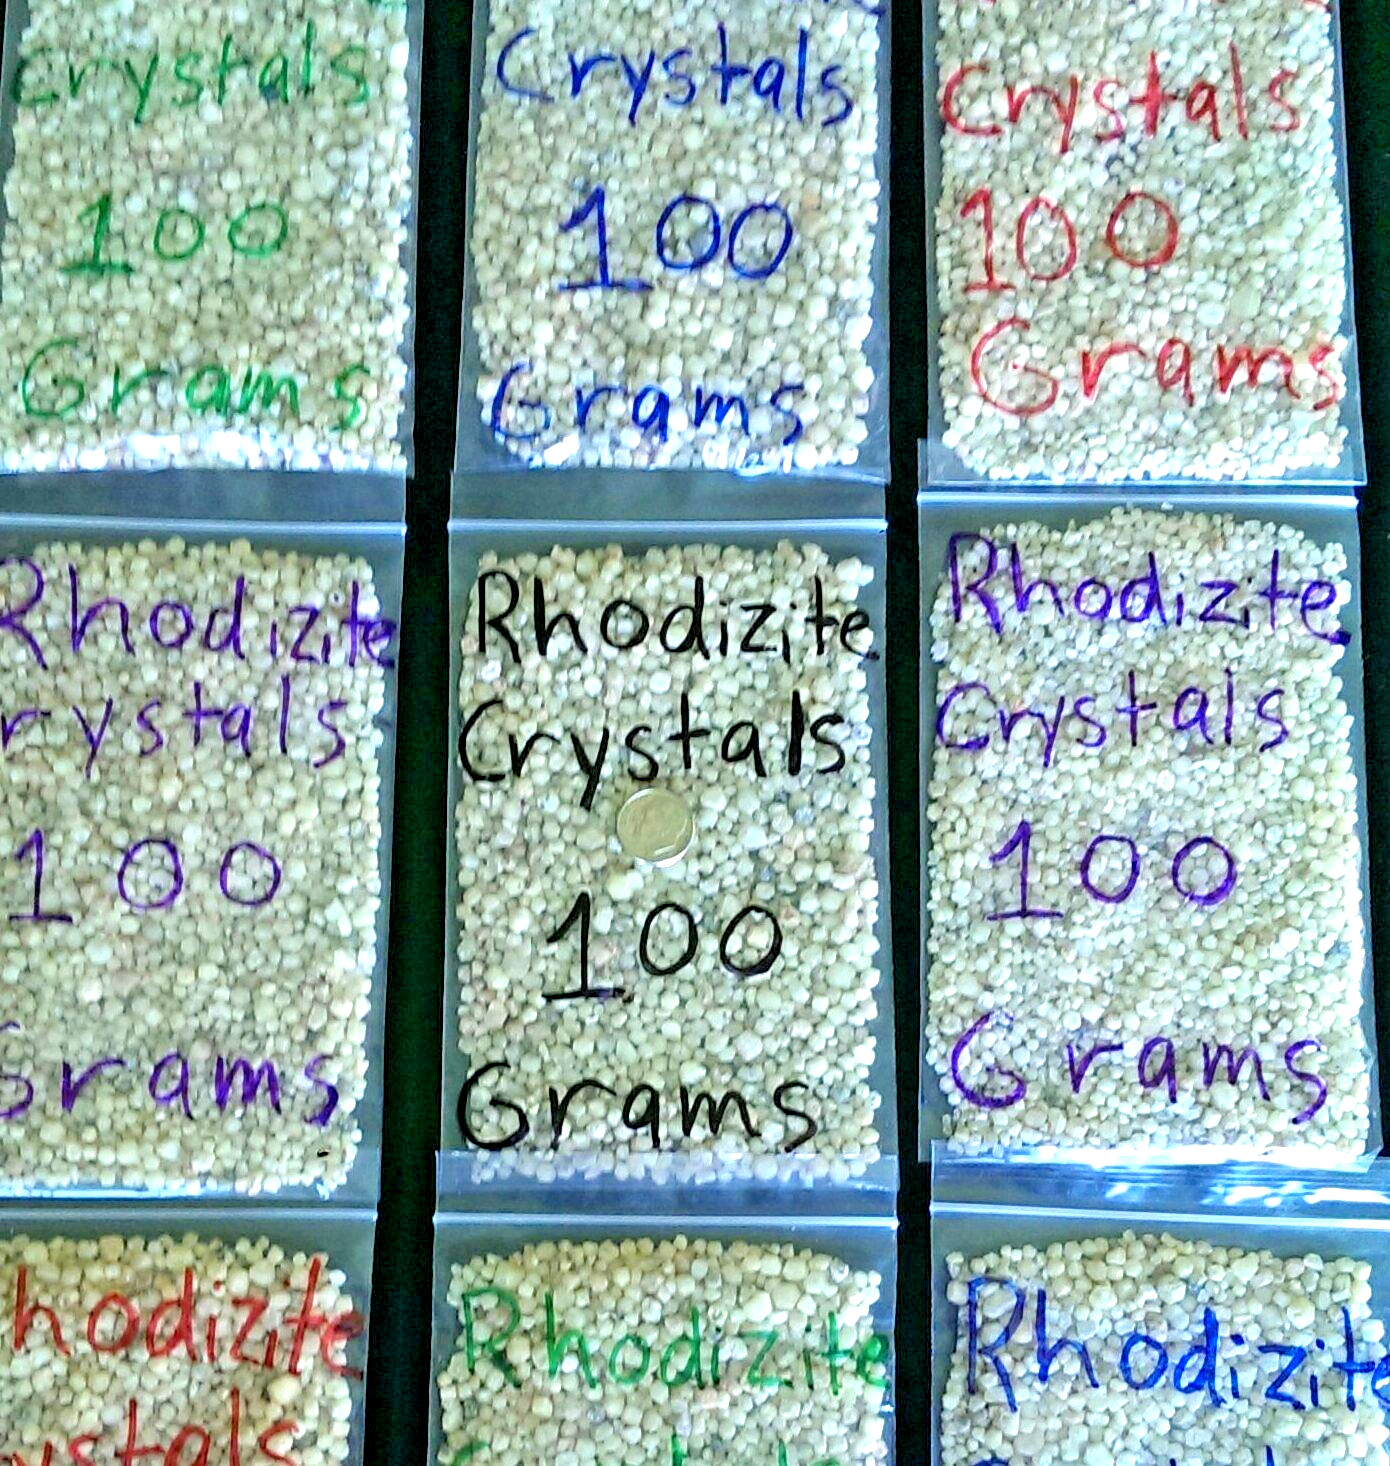 Crystals
100
Grams
Crystals
100
Grams
Crystals
100
Grams
Rhodizite
rystals
100
Grams
Rhodizite
Crystals
100
Grams
Rhodizite
Crystals
100
Grams
hodizite
ystals
Rhodizite
Rhodizite